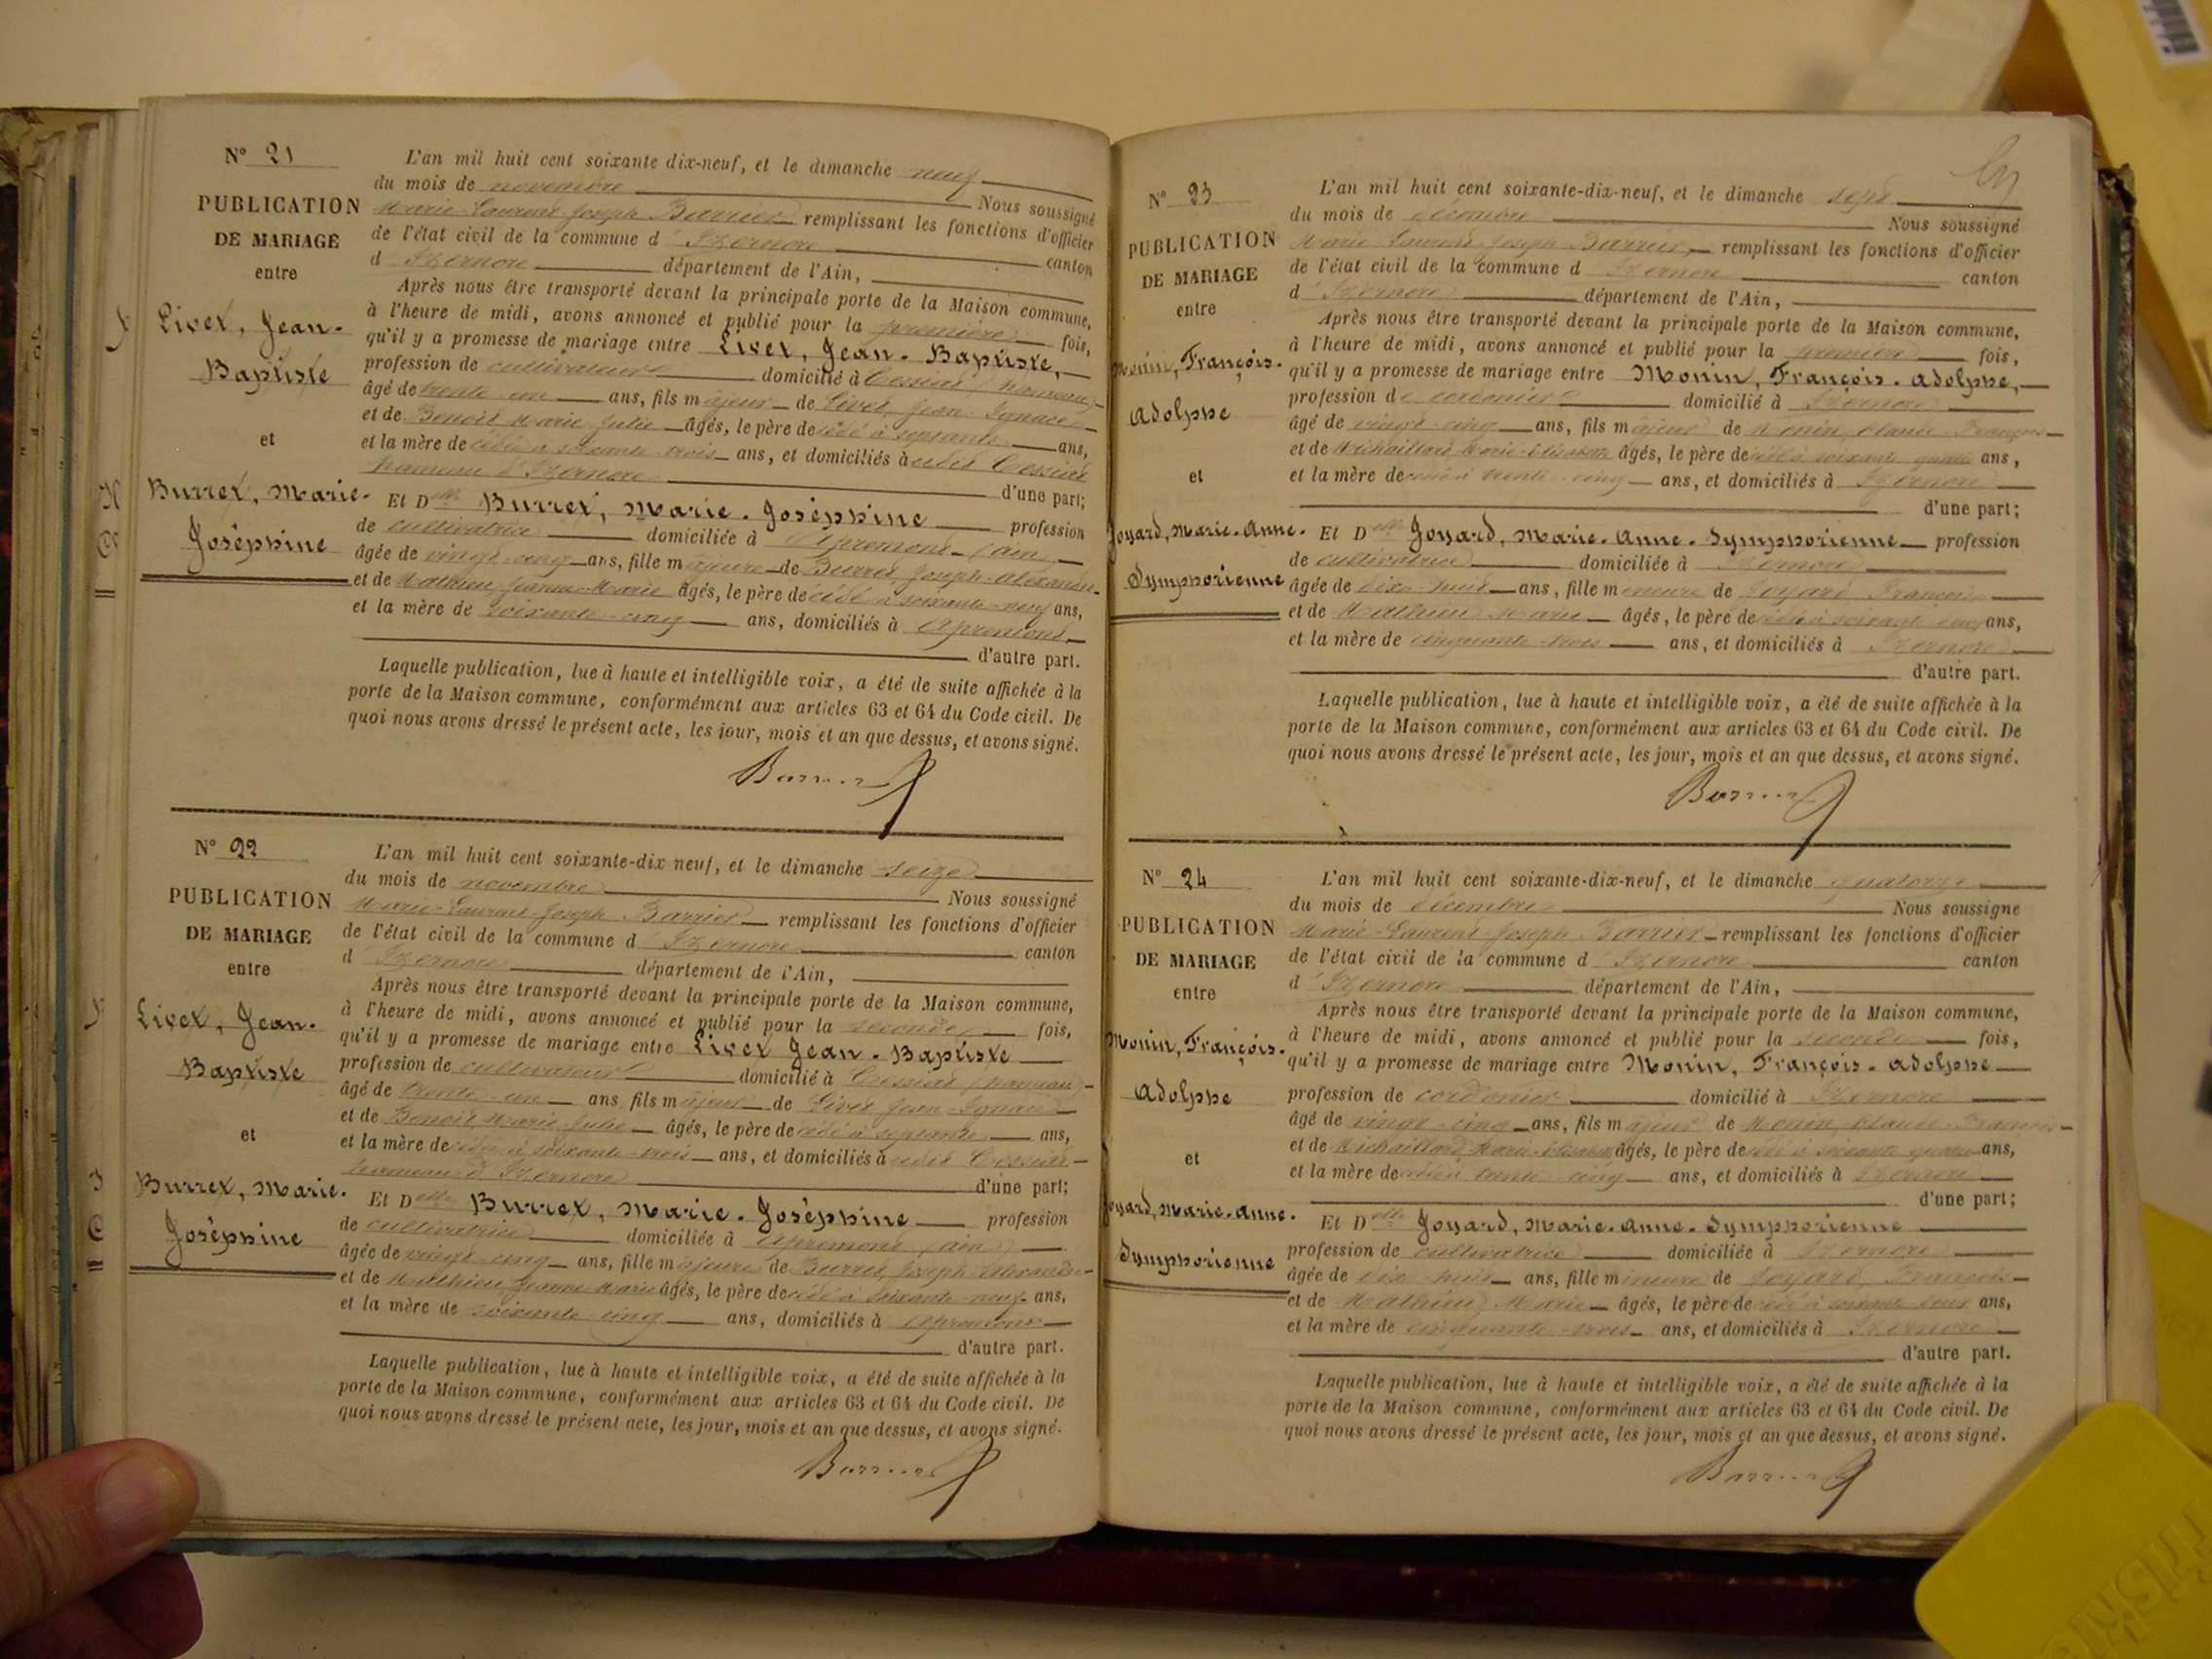 N° 21
PUBLICATION
DE MARIAGE
entre
Livet, Jean-
Baptiste
et
Burret, Marie-
Joséphine
L'an mil huit cent soixante dix-neuf, et le dimanche neuf
du mois de novembre Nous soussigné
Marie-Laurent-Joseph Barrier remplissant les fonctions d'officier
de l'état civil de la commune d'Izernore canton
d'Izernore département de l'Ain,
Après nous être transporté devant la principale porte de la Maison commune,
à l'heure de midi, avons annoncé et publié pour la première fois,
qu'il y a promesse de mariage entre Livet, Jean-Baptiste,
profession de cultivateur domicilié à Cessiat (hameau)
âgé de trente-un ans, fils majeur de Livet, Jean-Ignace
et de Benoit Marie Julie âgés, le père décédé à septante ans,
et la mère décédée à soixante-trois ans, et domiciliés à audit Cessiat
hameau d'Izernore d'une part;
Et Delle Burret, Marie-Joséphine profession
de cultivatrice domiciliée à Apremont (ain)
âgée de vingt-cinq ans, fille majeure de Burret, Joseph-Alexandre
et de Mathieu, Jeanne-Marie âgés, le père décédé à soixante-neuf ans,
et la mère de soixante-cinq ans, domiciliés à Apremont
d'autre part.
Laquelle publication, lue à haute et intelligible voix, a été de suite affichée à la
porte de la Maison commune, conformément aux articles 63 et 64 du Code civil. De
quoi nous avons dressé le présent acte, les jour, mois et an que dessus, et avons signé.
Barrier
N° 22
PUBLICATION
DE MARIAGE
entre
Livet, Jean-
Baptiste
et
Burret, Marie-
Joséphine
L'an mil huit cent soixante-dix neuf, et le dimanche seize
du mois de novembre Nous soussigné
Marie-Laurent-Joseph Barrier remplissant les fonctions d'officier
de l'état civil de la commune d'Izernore canton
d'Izernore département de l'Ain,
Après nous être transporté devant la principale porte de la Maison commune,
à l'heure de midi, avons annoncé et publié pour la seconde fois,
qu'il y a promesse de mariage entre Livet Jean-Baptiste
profession de cultivateur domicilié à Cessiat (hameau)
âgé de trente-un ans fils majeur de Livet Jean-Ignace
et de Benoit Marie Julie âgés, le père décédé à septante ans,
et la mère décédée à soixante-trois ans, et domiciliés à audit Cessiat
hameau d'Izernore d'une part;
Et Delle Burret, Marie-Joséphine profession
de cultivatrice domiciliée à Apremont (ain)
âgée de vingt-cinq ans, fille majeure de Burret, Joseph-Alexandre
et de Mathieu Jeanne Marie âgés, le père décédé à soixante-neuf ans,
et la mère de soixante-cinq ans, domiciliés à Apremont
d'autre part.
Laquelle publication, lue à haute et intelligible voix, a été de suite affichée à la
porte de la Maison commune, conformément aux articles 63 et 64 du Code civil. De
quoi nous avons dressé le présent acte, les jour, mois et an que dessus, et avons signé.
Barrier
N° 23
PUBLICATION
DE MARIAGE
entre
Monin, François-
Adolphe
et
Joyard, Marie-Anne-
Symphorienne
L'an mil huit cent soixante-dix-neuf, et le dimanche sept
du mois de décembre Nous soussigné
Marie-Laurent-Joseph Barrier, remplissant les fonctions d'officier
de l'état civil de la commune d'Izernore canton
d'Izernore département de l'Ain,
Après nous être transporté devant la principale porte de la Maison commune,
à l'heure de midi, avons annoncé et publié pour la première fois,
qu'il y a promesse de mariage entre Monin, François-Adolphe,
profession de cordonier domicilié à Izernore
âgé de vingt-cinq ans, fils majeur de Monin, Claude-François
et de Michaillard, Marie-Elisabeth âgés, le père décédé à soixante quatre ans,
et la mère décédée à trente-cinq ans, et domiciliés à Izernore
d'une part;
Et Delle Joyard, Marie-Anne-Symphorienne profession
de cultivatrice domiciliée à Izernore
âgée de dix-huit ans, fille mineure de Joyard François
et de Mathieu Marie âgés, le père décédé à soixante deux ans,
et la mère de cinquante-trois ans, et domiciliés à Izernore
d'autre part.
Laquelle publication, lue à haute et intelligible voix, a été de suite affichée à la
porte de la Maison commune, conformément aux articles 63 et 64 du Code civil. De
quoi nous avons dressé le présent acte, les jour, mois et an que dessus, et avons signé.
Barrier
N° 24
PUBLICATION
DE MARIAGE
entre
Monin, François-
Adolphe
et
Joyard, Marie-Anne-
Symphorienne
L'an mil huit cent soixante-dix-neuf, et le dimanche quatorze
du mois de décembre Nous soussigné
Marie-Laurent-Joseph Barrier remplissant les fonctions d'officier
de l'état civil de la commune d'Izernore canton
d'Izernore département de l'Ain,
Après nous être transporté devant la principale porte de la Maison commune,
à l'heure de midi, avons annoncé et publié pour la seconde fois,
qu'il y a promesse de mariage entre Monin, François-Adolphe
profession de cordonier domicilié à Izernore
âgé de vingt-cinq ans, fils majeur de Monin, Claude-François
et de Michaillard, Marie-Elisabeth âgés, le père décédé à soixante quatre ans,
et la mère décédée à trente-cinq ans, et domiciliés à Izernore
d'une part;
Et Delle Joyard, Marie-Anne-Symphorienne
profession de cultivatrice domiciliée à Izernore
âgée de dix-huit ans, fille mineure de Joyard, François
et de Mathieu Marie âgés, le père décédé à soixante deux ans,
et la mère de cinquante-trois ans, et domiciliés à Izernore
d'autre part.
Laquelle publication, lue à haute et intelligible voix, a été de suite affichée à la
porte de la Maison commune, conformément aux articles 63 et 64 du Code civil. De
quoi nous avons dressé le présent acte, les jour, mois et an que dessus, et avons signé.
Barrier